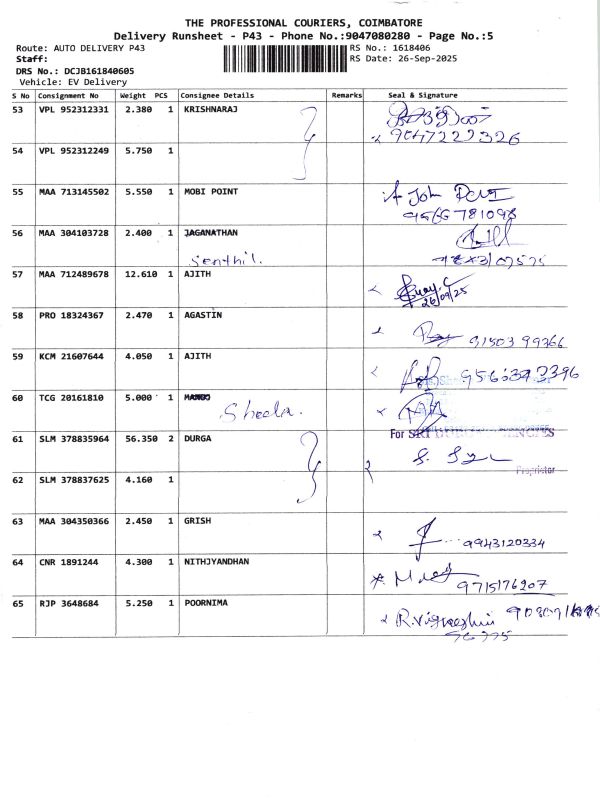 THE PROFESSIONAL COURIERS, COIMBATORE
Delivery Runsheet - P43 - Phone No.:9047080280 - Page No.:5
Route: AUTO DELIVERY P43 RS No.: 1618406
Staff: RS Date: 26-Sep-2025
DRS No.: DCJB161840605
Vehicle: EV Delivery
S No Consignment No Weight PCS Consignee Details Remarks Seal & Signature
53 VPL 952312331 2.380 1 KRISHNARAJ
9047227326
54 VPL 952312249 5.750 1
55 MAA 713145502 5.550 1 MOBI POINT John
56 MAA 304103728 2.400 1 JAGANATHAN
Senthil.
57 MAA 712489678 12.610 1 AJITH
26/09/25
58 PRO 18324367 2.470 1 AGASTIN
91503 99766
59 KCM 21607644 4.050 1 AJITH
60 TCG 20161810 5.000 1
Sheela.
For SRI
61 SLM 378835964 56.350 2 DURGA
Proprietor
62 SLM 378837625 4.160 1
63 MAA 304350366 2.450 1 GRISH
9943120334
64 CNR 1891244 4.300 1 NITHJYANDHAN
9715176207
65 RJP 3648684 5.250 1 POORNIMA